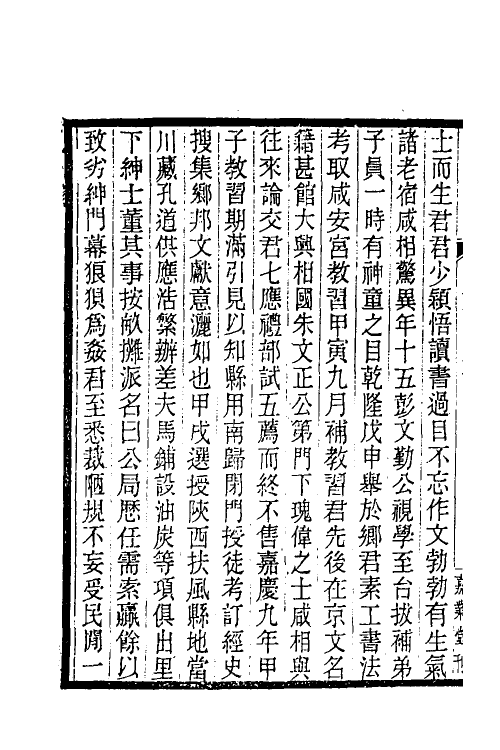 士而生君君少穎悟讀書過目不忘作文勃勃有生氣
諸老宿咸相驚異年十五彭文勤公視學至台拔補弟
子員一時有神童之目乾隆戊申舉於鄉君素工書法
考取咸安宮教習甲寅九月補教習君先後在京文名
籍甚館大興相國朱文正公第門下瑰偉之士咸相與
往來論交君七應禮部試五薦而終不售嘉慶九年甲
子教習期滿引見以知縣用南歸閉門授徒考訂經史
搜集鄉邦文獻意灑如也甲戌選授陝西扶風縣地當
川藏孔道供應浩繁辦差夫馬鋪設油炭等項俱出里
下紳士董其事按畝攤派名曰公局歷任需索贏餘以
致劣紳門幕狼狽為姦君至悉裁陋規不妄受民間一
嘉業堂刊